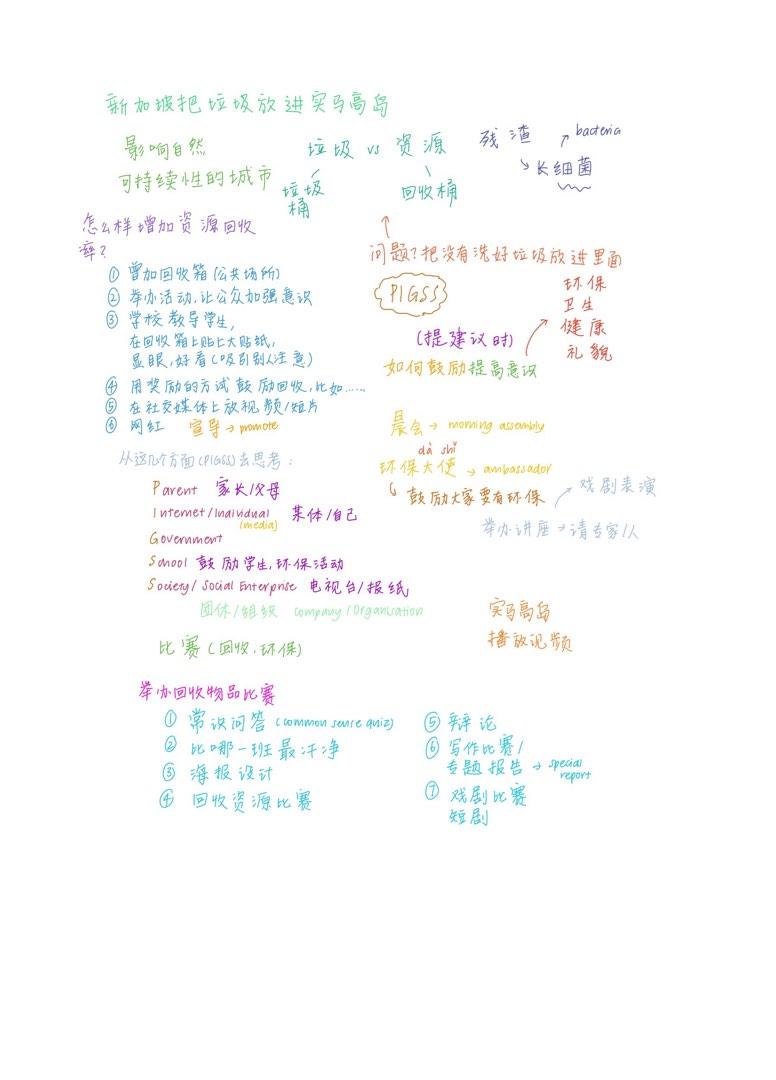 新加坡把垃圾放进实马高岛
影响自然
可持续性的城市
垃圾 vs 资源
垃圾桶
回收桶
残渣
bacteria
长细菌
怎么样增加资源回收率?
① 曾加回收箱(公共场所)
② 举办活动,让公众加强意识
③ 学校教导学生,
在回收箱上贴上大贴纸,
显眼,好看(吸引别人注意)
④ 用奖励的方式鼓励回收,比如……
⑤ 在社交媒体上放视频/短片
⑥ 网红 宣导→promote
问题?把没有洗好垃圾放进里面
PIGSS
环保
卫生
健康
礼貌
(提建议时)
如何鼓励提高意识
晨会→ morning assembly
dà shǐ
环保大使 → ambassador
鼓励大家要有环保
戏剧表演
举办讲座→请专家/人
从这几个方面(PIGSS)去思考:
Parent 家长/父母
Internet/Individual 某体/自己
(media)
Government
School 鼓励学生,环保活动
Society/ Social Enterprise 电视台/报纸
团体/组织 company/Organisation
实马高岛
播放视频
比赛(回收,环保)
举办回收物品比赛
① 常识问答 (common sense quiz)
② 比哪一班最干净
③ 海报设计
④ 回收资源比赛
⑤ 辩论
⑥ 写作比赛/
专题报告 → special report
⑦ 戏剧比赛
短剧